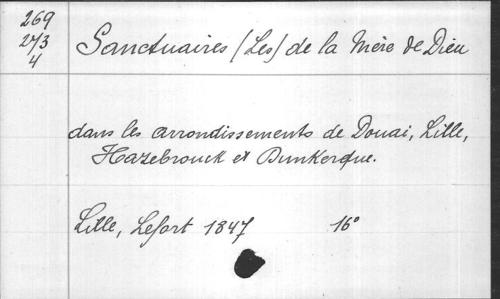 269
273
4
Sanctuaires (Les) de la Mère de Dieu
dans les arrondissements de Douai, Lille,
Hazebrouck et Dunkerque.
Lille, Lefort 1847 16°